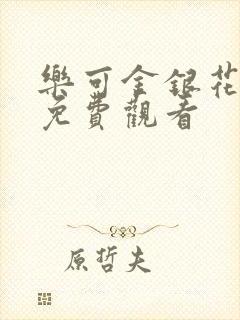 樂可金銀花
免費觀看
原哲夫